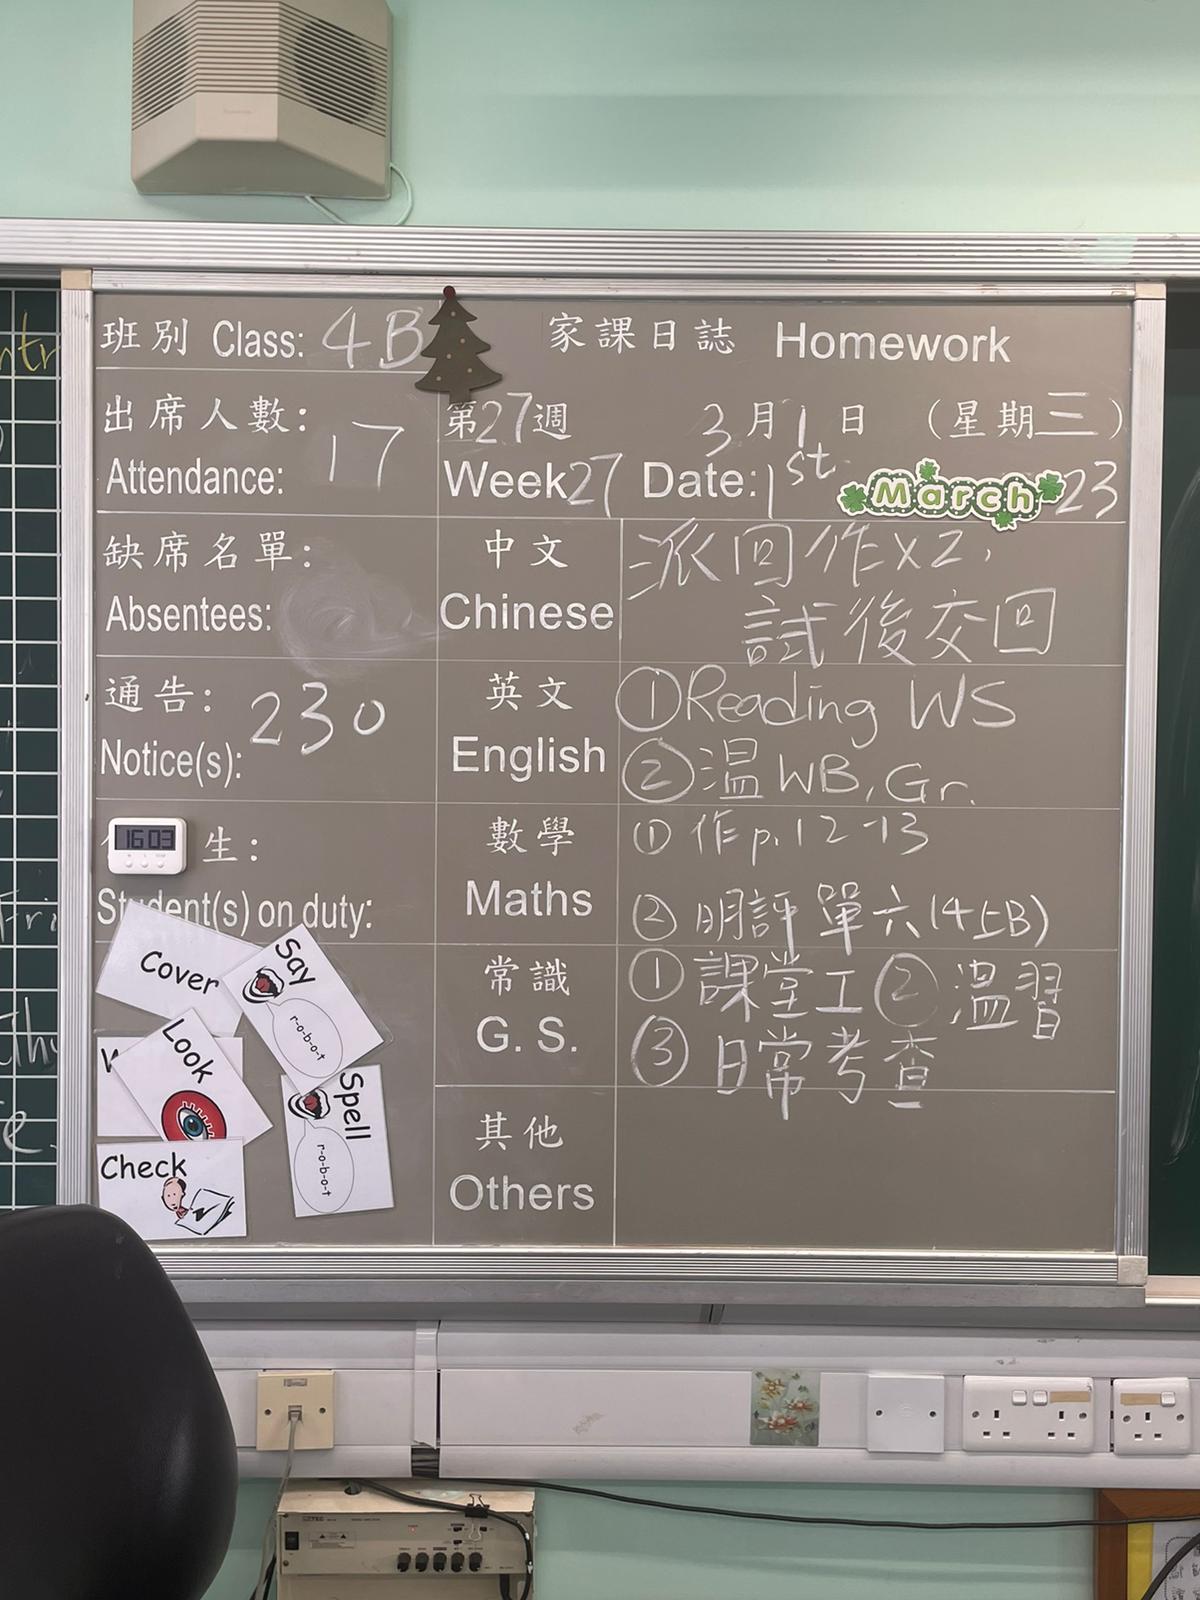 班別 Class: 4B
家課日誌 Homework
出席人數:
Attendance: 17
第27週 3月1日 (星期三)
Week 27 Date: 1st March 23
缺席名單:
Absentees:
中文
Chinese
派回作x2,
試後交回
通告:
Notice(s): 230
英文
English
①Reading WS
②溫WB, Gr.
16:03
生:
Student(s) on duty:
數學
Maths
① 作p.12-13
② 明評單六(4上B)
常識
G. S.
① 課堂工 ② 溫習
③ 日常考查
其他
Others
Cover
Say
r-o-b-o-t
Look
Spell
r-o-b-o-t
Check